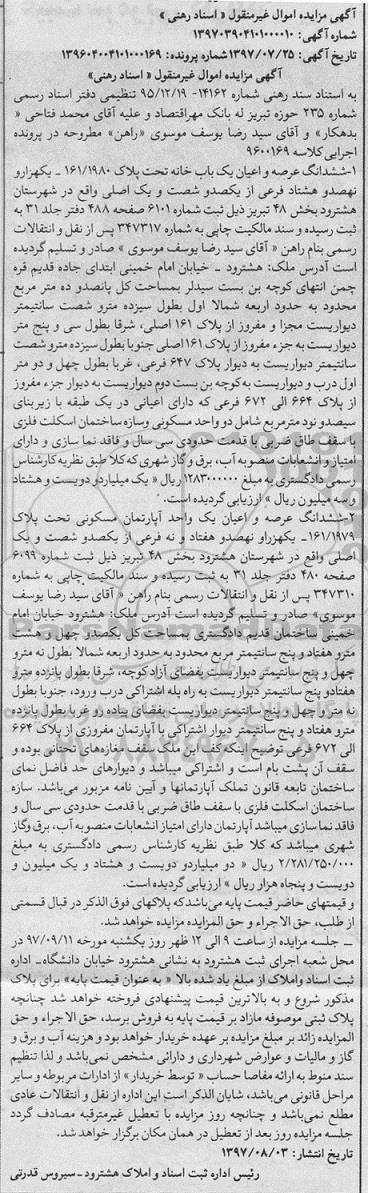 آگهی مزایده اموال غیرمنقول « اسناد رهنی »
شماره آگهی: ۱۳۹۷۰۳۹۰۴۱۰۱۰۰۰۰۱۰
تاریخ آگهی: ۱۳۹۷/۰۷/۲۵ شماره پرونده: ۱۳۹۶۰۴۰۰۴۱۰۱۰۰۰۱۶۹
آگهی مزایده اموال غیرمنقول « اسناد رهنی»
به استناد سند رهنی شماره ۱۴۱۶۲- ۹۵/۱۲/۱۹ تنظیمی دفتر اسناد رسمی
شماره ۲۳۵ حوزه تبریز له بانک مهراقتصاد و علیه آقای محمد فتاحی «
بدهکار» و آقای سید رضا یوسف موسوی «راهن» مطروحه در پرونده
اجرایی کلاسه ۹۶۰۰۱۶۹
۱-ششدانگ عرصه و اعیان یک باب خانه تحت پلاک ۱۶۱/۱۹۸۰ ـ یکهزارو
نهصدو هشتاد فرعی از یکصدو شصت و یک اصلی واقع در شهرستان
هشترود بخش ۴۸ تبریز ذیل ثبت شماره ۶۱۰۱ صفحه ۴۸۸ دفتر جلد ۳۱ به
ثبت رسیده و سند مالکیت چاپی به شماره ۳۴۷۳۱۷ پس از نقل و انتقالات
رسمی بنام راهن « آقای سید رضا یوسف موسوی » صادر و تسلیم گردیده
است آدرس ملک: هشترود ـ خیابان امام خمینی ابتدای جاده قدیم قره
چمن انتهای کوچه بن بست سیدلر بمساحت کل پانصدو ده متر مربع
محدود به حدود اربعه شمالا اول بطول سیزده مترو شصت سانتیمتر
دیواریست مجزا و مفروز از پلاک ۱۶۱ اصلی، شرقا بطول سی و پنج متر
دیواریست به جزء مفروز از پلاک ۱۶۱ اصلی جنوبا بطول سیزده مترو شصت
سانتیمتر دیواریست به دیوار پلاک ۶۴۷ فرعی، غربا بطول چهل و دو متر
اول درب و دیواریست به کوچه بن بست دوم دیواریست به دیوار جزء مفروز
از پلاک ۶۶۴ الی ۶۷۲ فرعی که دارای اعیانی در یک طبقه با زیربنای
سیصدو نود مترمربع شامل دو واحد مسکونی وسازه ساختمان اسکلت فلزی
با سقف طاق ضربی با قدمت حدودی سی سال و فاقد نما سازی و دارای
امتیاز و انشعابات منصوبه آب، برق و گاز شهری که کلا طبق نظریه کارشناس
رسمی دادگستری به مبلغ ۱۲۸۳۰۰۰۰۰۰ ریال « یک میلیاردو دویست و هشتاد
و سه میلیون ریال » ارزیابی گردیده است.
۲-ششدانگ عرصه و اعیان یک واحد آپارتمان مسکونی تحت پلاک
۱۶۱/۱۹۷۹ـ یکهزراو نهصدو هفتاد و نه فرعی از یکصدو شصت و یک
اصلی واقع در شهرستان هشترود بخش ۴۸ تبریز ذیل ثبت شماره ۶۰۹۹
صفحه ۴۸۰ دفتر جلد ۳۱ به ثبت رسیده و سند مالکیت چاپی به شماره
۳۴۷۳۱۰ پس از نقل و انتقالات رسمی بنام راهن « آقای سید رضا یوسف
موسوی» صادر و تسلیم گردیده است آدرس ملک: هشترود خیابان امام
خمینی ساختمان قدیم دادگستری بمساحت کل یکصدو چهل و هشت
مترو هفتاد و پنج سانتیمتر مربع محدود به حدود اربعه شمالا بطول نه مترو
چهل و پنج سانتیمتر دیواریست بفضای آزاد کوچه، شرقا بطول پانزده مترو
هفتادو پنج سانتیمتر دیواریست به راه پله اشتراکی درب ورود، جنوبا بطول
نه متر و چهل و پنج سانتیمتر دیواریست بفضای پیاده رو غربا بطول پانزده
مترو هفتاد و پنج سانتیمتر دیوار اشتراکی با آپارتمان مفروزی از پلاک ۶۶۴
الی ۶۷۲ فرعی توضیح اینکه کف این ملک سقف مغازه‌های تحتانی بوده و
سقف آن پشت بام است و اشتراکی میباشد و دیوارهای حد فاضل نمای
ساختمان تابعه قانون تملک آپارتمانها و آیین نامه مزبور می‌باشد. سازه
ساختمان اسکلت فلزی با سقف طاق ضربی با قدمت حدودی سی سال و
فاقد نما سازی میباشد آپارتمان دارای امتیاز انشعابات منصوبه آب، برق وگاز
شهری میباشد که کلا طبق نظریه کارشناس رسمی دادگستری به مبلغ
۲/۲۸۱/۲۵۰/۰۰۰ ریال « دو میلیاردو دویست و هشتاد و یک میلیون و
دویست و پنجاه هزار ریال » ارزیابی گردیده است.
و قیمتهای حاضر قیمت پایه می‌باشد که پلاکهای فوق الذکر در قبال قسمتی
از طلب، حق الاجراء و حق المزایده مزایده خواهد شد.
ـ جلسه مزایده از ساعت ۹ الی ۱۲ ظهر روز یکشنبه مورخه ۹۷/۰۹/۱۱ در
محل شعبه اجرای ثبت هشترود به نشانی هشترود خیابان دانشگاه- اداره
ثبت اسناد واملاک از مبلغ یاد شده بالا « به عنوان قیمت پایه» برای پلاک
مذکور شروع و به بالاترین قیمت پیشنهادی فروخته خواهد شد چنانچه
پلاک ثبتی موصوفه مازاد بر قیمت پایه به فروش برسد، حق الاجراء و حق
المزایده زائد بر مبلغ مزایده بر عهده خریدار خواهد بود و هزینه آب و برق و
گاز و مالیات و عوارض شهرداری و دارائی مشخص نمی‌باشد و لذا تنظیم
سند منوط به ارائه مفاصا حساب « توسط خریدار» از ادارات مربوطه و سایر
مراحل قانونی می‌باشد، شایان الذکر است این اداره از نقل و انتقالات عادی
مطلع نمی‌باشد و چنانچه روز مزایده با تعطیل غیرمترقبه مصادف گردد
جلسه مزایده روز بعد از تعطیل در همان مکان برگزار خواهد شد.
تاریخ انتشار: ۱۳۹۷/۰۸/۰۳
رئیس اداره ثبت اسناد و املاک هشترود ـ سیروس قدرتی